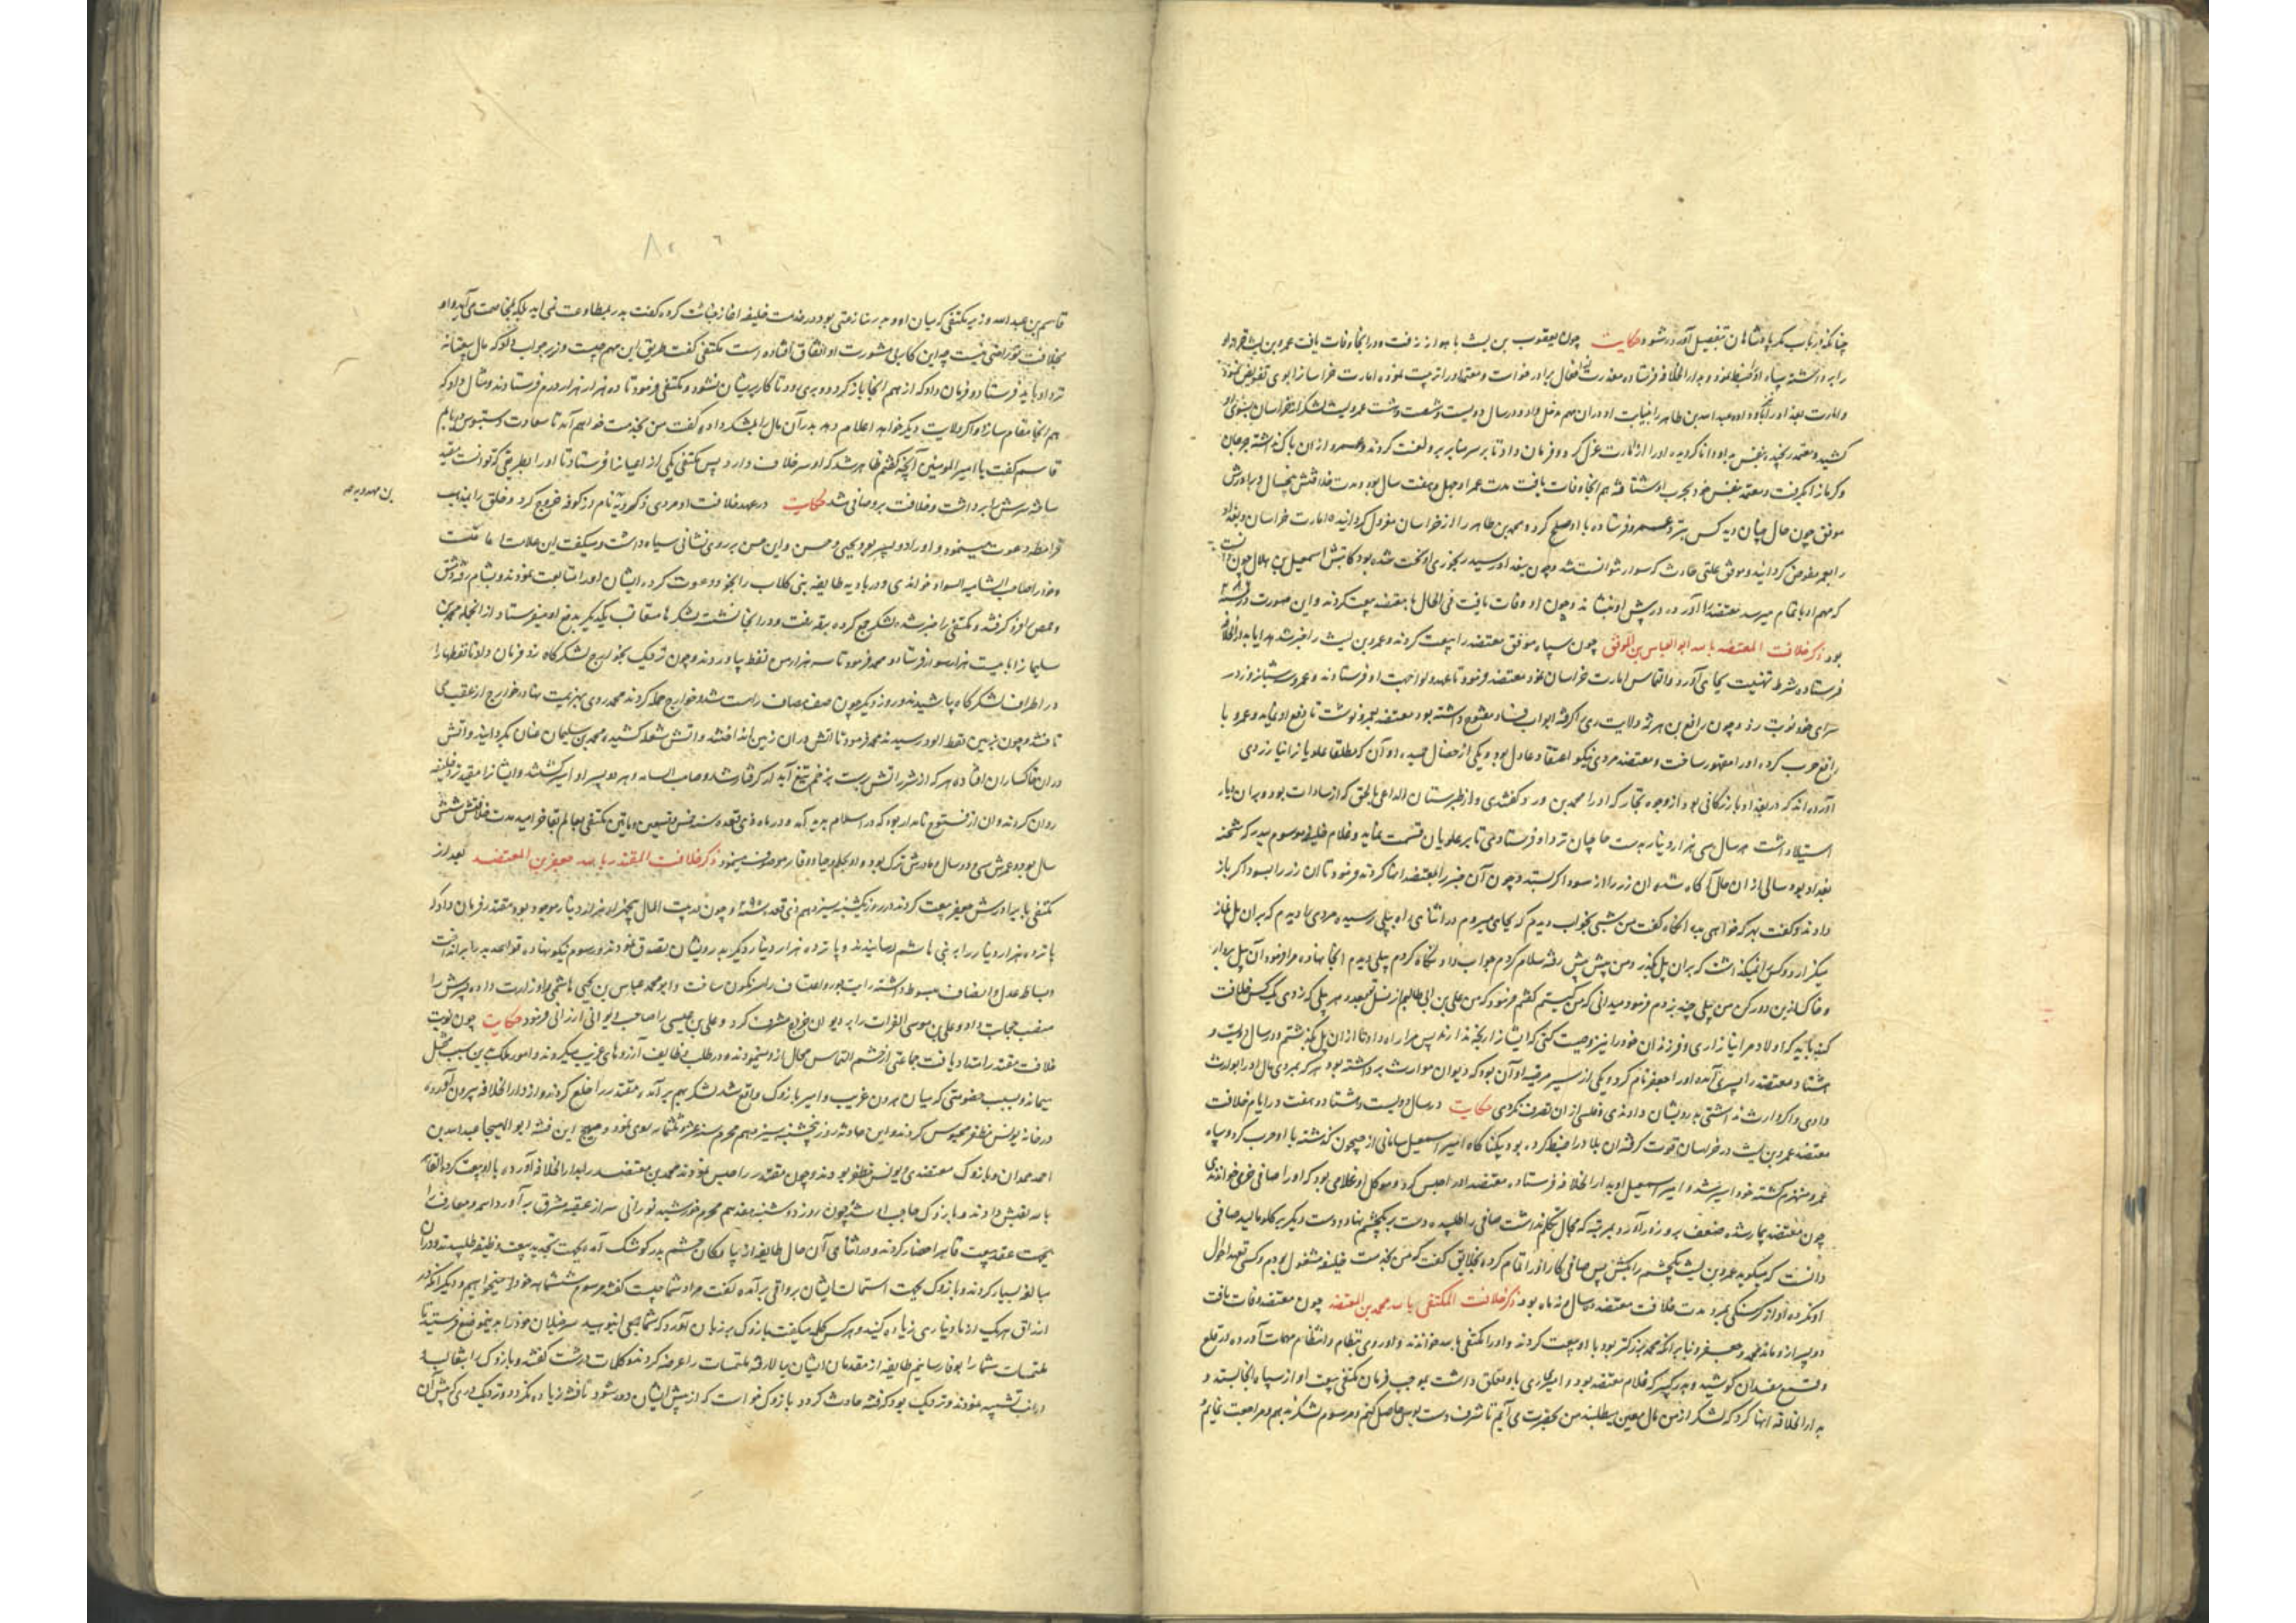 چنانکه در باب دیگر پادشاهان بتفصیل آورده شود حکایت چون یعقوب بن لیث باهواز رفت و در انجا وفات یافت عمرو بن لیث
را برداشته سپاه او ضبط نمود و بدار الخلافه فرستاده معذرت افعال برادر خواست و معتمد او را تربیت نموده امارت خراسان را بوی تفویض نمود
و امارت بغداد را عبد الله بن طاهر را بنیابت او در ان مهم دخل داد و در سال دویست و شصت و شت عمرو لیث لشکر از خراسان
کشید و معتمد رنجیده بنفس او را از امارت عزل کرد و فرمان داد تا بر سر منابر برو لعنت کردند و عمرو از ان باک نداشته جرجان
و کرمان را بگرفت و معتمد بنفس خود بحرب او شتافته هم انجا وفات یافت مدت عمر او چهل و هفت سال بود و مدت خلافتش سال و برادرش
موفق چون حال چنان دید کس نزد عمرو فرستاده با او صلح کرد و محمد بن طاهر را از خراسان معزول گردانیده امارت خراسان و بغداد
را بعمرو مفوض گردانید و موفق بعلتی حادث که سوار نتوانست شد و چون ببغداد رسید رنجوری او سخت شده بود کاتبش اسمعیل بن بلال چون دانست
که مهم او باتمام میرسد معتضد را آورده در پیش او بنشاند و چون او وفات یافت فی الحال با معتضد بیعت کردند و این صورت در سنه
بود ذکر خلافت المعتضد بالله ابو العباس بن الموفق چون سپاه موفق معتضد را بیعت کردند و عمرو بن لیث را خبر شد هدایا بدار الخلافه
فرستاده شرط تهنیت بجای آورد و التماس امارت خراسان نمود معتضد فرمود تا عهد و لوا جهت او فرستادند و عمرو شبانروز در
سرای خود نوبت زد و چون رافع بن هرثمه ولایت ری گرفته ابواب فساد مفتوح داشته بود معتضد بعمرو نوشت تا دفع او نماید و عمرو با
رافع حرب کرده او را مقهور ساخت و معتضد مردی نیکو اعتقاد و عادل بود و یکی از خصال حمیده او آن که مطلقا علویان را نیازردی
آورده اند که در بغداد بازرگانی بود از وجوه تجار که او را محمد بن ورد گفتندی و از طبرستان الداعی بالحق که از سادات بود و بر ان دیار
استیلا داشت هر سال سی هزار دینار بدست حاجیان نزد او فرستادی تا بر علویان قسمت نماید و غلام خلیفه موسوم ببدر که شحنه
بغداد بود سالی از ان حال آگاه شده ان زر را از سوداگر بستد و چون آن خبر را بمعتضد انها کردند فرمود تا ان زر را بسوداگر باز
دادند و گفت بهر که خواهی بده انگاه گفت من شبی بخواب دیدم که بجای میروم در اثنای راه بپلی رسیده مردی را دیدم که بر ان پل نماز
میگزارد و کس را نمیگذاشت که بران پل بگذرد من پیش پیش رفته سلام کردم جواب داد و نگاه کردم بیلی دیدم انجا نهاده مرا فرمود آن بیل بردار
و خاک ازین دور کن من بیلی چند بزدم فرمود میدانی که من کیستم گفتم فرمود که من علی بن ابی طالبم از نسل تو بعدد هر بیلی که زدی یک کس خلافت
کند باید که اولاد مرا نیازاری و فرزندان خود را نیز وصیت کنی که ایشان را رنجه ندارند پس مرا راه داد تا از ان پل بگذشتم و در سال دویست و
هشتاد معتضد را پسری آمد او را جعفر نام کرد و یکی از سیر مرضیه او آن بود که دیوان مواریث برداشته بود هر که بمردی مال او را بوارث
دادی و اگر وارث نداشتی بدرویشان دادندی و فلسی از ان تصرف نکردی حکایت در سال دویست و هشتاد و هفت در ایام خلافت
معتضد عمرو بن لیث در خراسان قوت گرفته ان بلاد را ضبط کرده بود بیکناگاه امیر اسمعیل سامانی از جیحون گذشته با او حرب کرد و سپاه
عمرو منهزم گشته خود اسیر شد و امیر اسمعیل او بدار الخلافه فرستاده معتضد او را حبس کرد و موکل او غلامی بود که او را صافی خرمی خواندندی
چون معتضد بیمار شده ضعف برو زور آورد بمرتبه که مجال تکلم نداشت صافی را طلبیده دست بر یکچشم نهاد و دست دیگر بر گلو مالید صافی
دانست که میگوید عمرو بن لیث یکچشم را بکش پس صافی کار او را تمام کرده بخلایق گفت که من بخدمت خلیفه مشغول بودم و کسی تعهد احوال
او نکرده او از گرسنگی بمرد مدت خلافت معتضد ده سال و نه ماه بود ذکر خلافت المکتفی بالله محمد بن المعتضد چون معتضد وفات یافت
دو پسر ازو ماند محمد و جعفر و بنابر انکه محمد بزرگتر بود با او بیعت کردند و او را مکتفی بالله خواندند و او روی بنظام و انتظام مهمات آورده در قلع
و قمع مفسدان کوشید و بدر کبیر که غلام معتضد بود و امیری باو تعلق داشت بموجب فرمان مکتفی بیعت او از سپاه انجا بستد و
بدار الخلافه انها کرد که لشکر از من مال معین میطلبند من بحضرت می آیم تا شرف دست بوس حاصل کنم و مرسوم لشکر بدهم و مراجعت نمایم
قاسم بن عبد الله وزیر مکتفی که میان او و بدر منازعتی بود در خدمت خلیفه اغاز خباثت کرده گفت بدر بمطاوعت نمی اید بلکه بمخاصمت می آید و او
بخلافت تو راضی نیست چه این کار بی مشورت او اتفاق افتاده است مکتفی گفت طریق این مهم چیست وزیر جواب داد که مال
نزد او باید فرستاد و فرمان داد که از هم انجا باز گردد و بری رود تا کار پریشان نشود و مکتفی فرمود تا ده هزار هزار درم فرستادند و مثال داد که
هم انجا مقام سازد و اگر ولایت دیگر خواهد اعلام دهد بدر آن مال را بلشکر داده گفت من بخدمت خواهم آمد تا سعادت دستبوس دریابم
قاسم گفت یا امیر المومنین آنچه گفتم ظاهر شد که او سر خلاف دارد پس مکتفی یکی از اعیان را فرستاد تا او را بطریقی که توانست مقید
ساخته سرش را برداشت و خلافت برو صافی شد حکایت در عهد خلافت او مردی ذکرویه نام در کوفه خروج کرد و خلق را بمذهب
بن مهدویه صح
قرامطه دعوت مینمود و او را دو پسر بود یحیی و حسن و این حسن بر روی نشانی سیاه داشت و میگفت این علامت امامتست
و خود را صاحب الشامه السواد خواندی و در بادیه طایفه بنی کلاب را بخود دعوت کرده ایشان او را متابعت نمودند و بشام رفته دمشق
و حمص را فرو گرفته و مکتفی را خبر شده لشکر جمع کرده برقه رفت و در انجا نشست لشکرها متعاقب یکدیگر بدفع او میفرستاد از انجمله محمد بن
سلیمان را با بیست هزار سوار فرستاد و محمد فرمود تا سه هزار من نفط بیاوردند و چون نزدیک بخوارج لشکرگاه زد فرمان داد تا نفطها را
در اطراف لشکرگاه پاشیدند و روز دیگر چون صف مصاف راست شد و خوارج حمله کردند محمد روی بهزیمت نهاد خوارج از عقب می
تاختند و چون بزمین نفط الود رسیدند محمد فرمود تا اتش در ان زمین انداختند و اتش شعله کشیده محمد بن سلیمان عنان بگردانید و اتش
دران خاکساران افتاده هر که از شرر اتش برست بزخم تیغ آبدار گرفتار شد و صاحب الشامه و هر دو پسر او اسیر گشتند و ایشان را مقید نزد خلیفه
روان کردند و ان از فتوح نامدار بود که در اسلام پدید آمد و در ماه ذی قعده سنه خمس و تسعین و مایتین مکتفی بعالم بقا خرامید مدت خلافتش شش
سال بود و عمرش سی و دو سال و مادرش ترک بود و او بحلم و حیا و وقار موصوف مینمود ذکر خلافت المقتدر بالله جعفر بن المعتضد بعد از
مکتفی با برادرش جعفر بیعت کردند در روز یکشنبه سیزدهم ذی قعده سنه ۲۹۵ و چون در بیت المال پنجهزار هزار دینار موجود بود مقتدر فرمان داد که
پانزده هزار دینار را بر بنی هاشم رسانیدند و پانزده هزار دینار دیگر بدرویشان تصدق نمودند و رسوم نیکو نهاده قواعد بد را برانداخت
و بساط عدل و انصاف مبسوط داشته رایت جور و اعتساف را سرنگون ساخت و ابو محمد عباس بن یحیی هاشمی را وزارت داده پسرش را
منصب حجابت داد و علی بن موسی الفرات را بر دیوان خراج مشرف کرد و علی بن عیسی را صاحب دیوانی ارزانی فرمود حکایت چون نوبت
خلافت مقتدر امتداد یافت جماعتی از حشم التماس محال ازو مینمودند و در طلب وظایف آرزوهای غریب میکردند و امور ملک بدین سبب مختل
میماند و بسبب خصومتی که میان هرون غریب و امیر بازوک واقع شد لشکر بهم برآمده مقتدر را خلع کردند و از دار الخلافه بیرون آورده
در خانه یونس مظفر محبوس کردند و این حادثه روز پنجشنبه سیزدهم محرم سنه عشر و ثلثمایه روی نمود و مهیج این فتنه ابو الهیجا عبد الله بن
احمد حمدان و بازوک معتضدی و یونس مظفر بودند و چون مقتدر را حبس نمودند محمد بن معتضد را بدار الخلافه آورده با او بیعت کرده القاهر
بالله لقبش دادند و بازوک حاجب او شد چون روز دوشنبه هفدهم محرم خورشید نورانی سر از عقبه مشرق برآورد اسم و معارف را
بجهت عقد بیعت قاهر احضار کردند و در اثنای آن حال طایفه از پیادگان حشم بدر کوشک آمده بجهت تجدید بیعت وظیفه طلبیدند و دران
مبالغه بسیار کردند و بازوک بجهت استمالت ایشان برواقی برآمده گفت مراد شما چیست گفتند مرسوم ششماهه خود را میخواهیم و دیگر آنکه در
ارزاق هر یک از ما دیناری زیاده کنید و هر کس کلمه میگفت بازوک بر زبان آورد که شما جمعی انبوهید سرخیلان خود را بدینموضع فرستید تا
ملتمسات شما را بوفا رسانیم طایفه از مقدمان ایشان ببالا رفته ملتمسات را عرضه کردند و کلمات درشت گفته و بازوک را
نسبت نمودند و نزدیک بود که فتنه حادث گردد بازوک خواست که از پیش ایشان دور شود تا فتنه زیاده نگردد و نزدیک دری که پیش آن